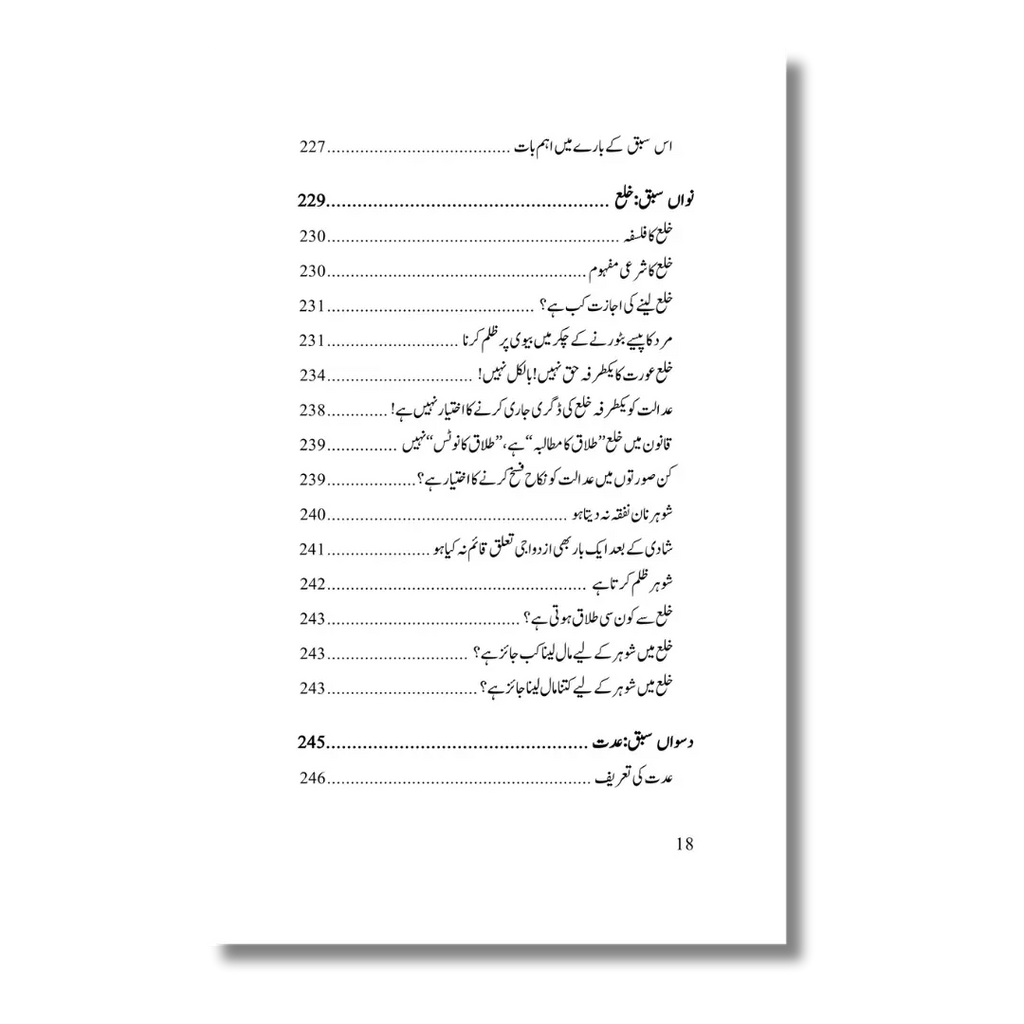 اس سبق کے بارے میں اہم بات ....................................... 227
نواں سبق: خلع ...................................................... 229
خلع کا فلسفہ .............................................................. 230
خلع کا شرعی مفہوم ....................................................... 230
خلع لینے کی اجازت کب ہے؟ ............................................ 231
مرد کا پیسے بٹورنے کے چکر میں بیوی پر ظلم کرنا ............................ 231
خلع عورت کا یکطرفہ حق نہیں! بالکل نہیں! ............................... 234
عدالت کو یکطرفہ خلع کی ڈگری جاری کرنے کا اختیار نہیں ہے! ............. 238
قانون میں خلع ”طلاق کا مطالبہ“ ہے، ”طلاق کا نوٹس“ نہیں ............... 239
کن صورتوں میں عدالت کو نکاح فسخ کرنے کا اختیار ہے؟ ................... 239
شوہر نان نفقہ نہ دیتا ہو ................................................... 240
شادی کے بعد ایک بار بھی ازدواجی تعلق قائم نہ کیا ہو ...................... 241
شوہر ظلم کرتا ہے ....................................................... 242
خلع سے کون سی طلاق ہوتی ہے؟ ......................................... 243
خلع میں شوہر کے لیے مال لینا کب جائز ہے؟ .............................. 243
خلع میں شوہر کے لیے کتنا مال لینا جائز ہے؟ ................................ 243
دسواں سبق: عدت .................................................. 245
عدت کی تعریف ........................................................ 246
18